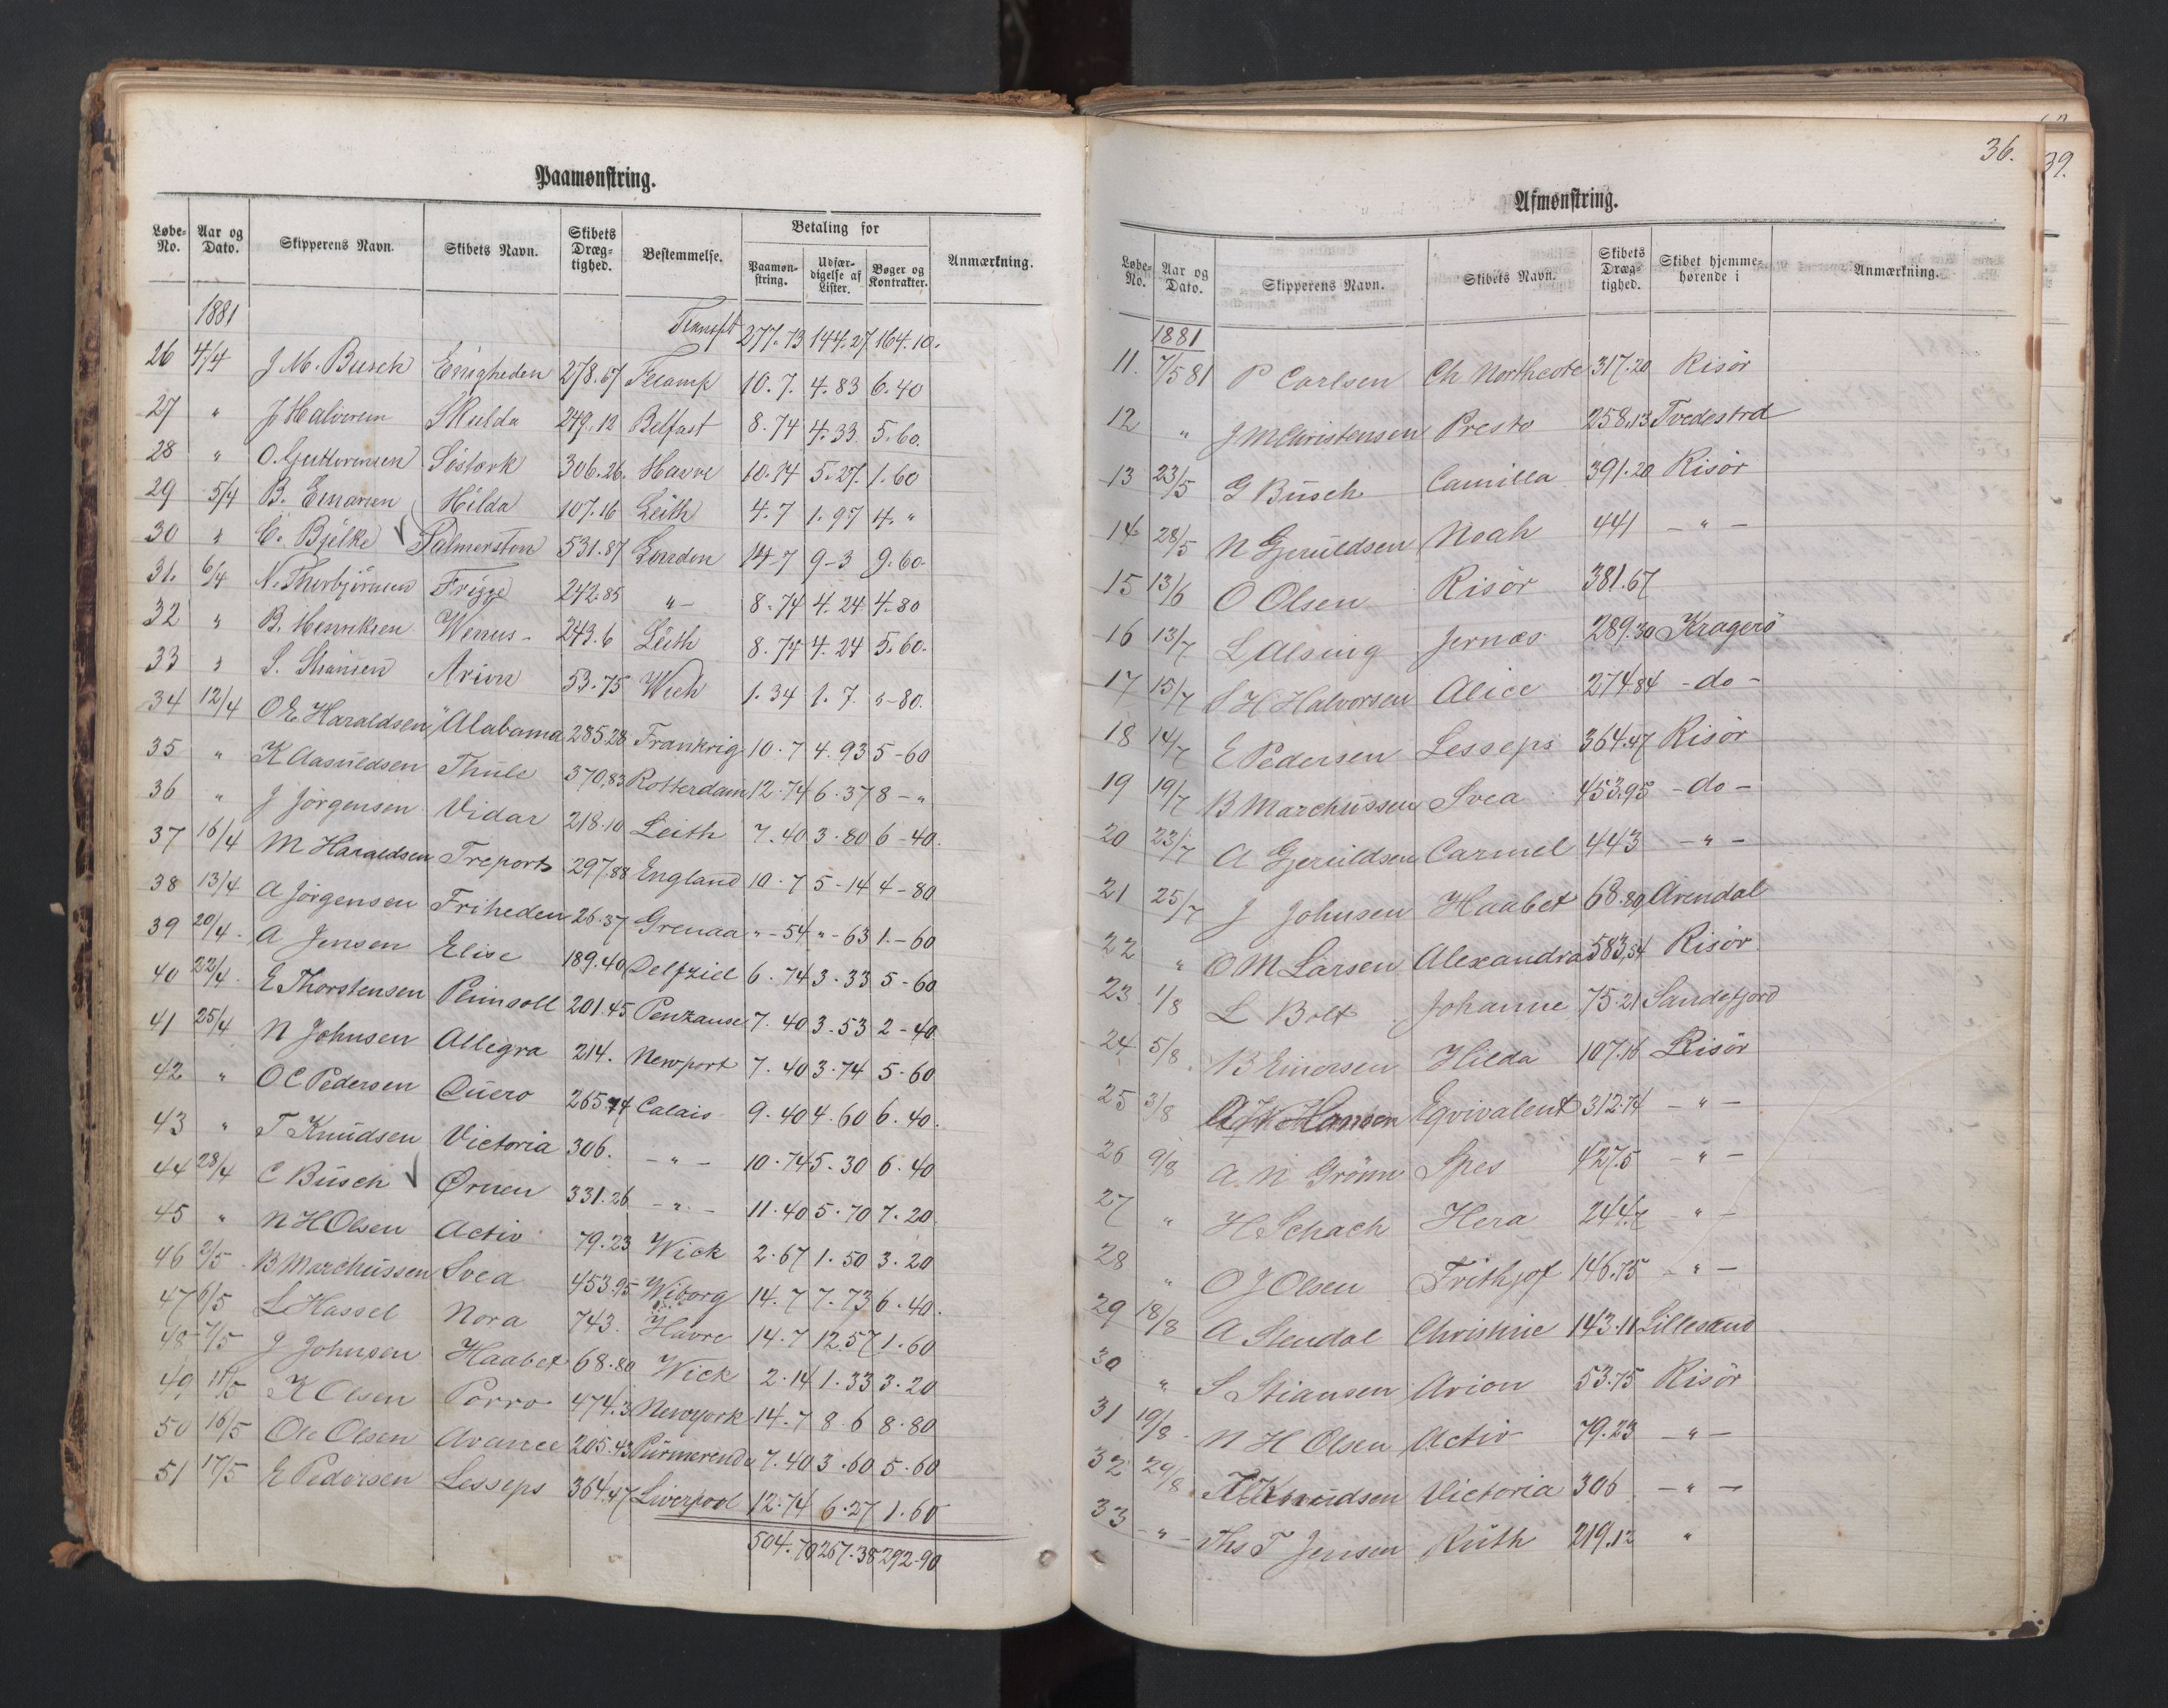 Paamønstring.
Løbe-No. Aar og Dato. Skipperens Navn. Skibets Navn. Skibets Dræg-tighed. Bestemmelse. Betaling for Paamøn-string. Udfær-digelse af Lister. Bøger og Kontrakter. Anmærkning.
1881 Transpt 277.73 144.27 164.10.
26 4/4 J M. Busch Enigheden 278.67 Fecamp 10.7. 4.83 6.40
27 " J Halvorsen Skulda 249.12 Belfast 8.74 4.33 5.60.
28 " O. Guttormsen Söstærk 306.26. Havre 10.74 5.27. 1.60
29 5/4 B. Einarsen Hilda 107.16 Leith 4.7 1.97 4. "
30 " C. Bjelke Palmerston 531.87 London 14-7 9-3 9.60.
31. 6/4 N. Thorbjörnsen Frigge 242.85 " - 8.74 4.24 4.80
32 " B. Henriksen Wenus - 243.6 Leith 8.74 4.24 5.60.
33 " S. Stiansen Arion 53.75 Wick 1.34 1.7. 3-80.
34 12/4 O E Haraldsen "Alabama 285.28 Frankrig 10.7 4.93 5-60
35 " K Aasuldsen Thule 370,83 Rotterdam 12.74 6.37 8 - "
36 " J Jörgensen Vidar 218.10 Leith 7.40 3.80 6-40.
37 16/4 M Haraldsen Treport 297.88 England 10.7 5-14 4-80
38 13/4 A Jörgensen Friheden 26.37 Grenaa "-54 "-63 1.-60
39 20/4. A Jensen Elise 189.40 Delfziel 6.74 3.33 5-60
40 22/4. E Thorstensen Plimsoll 201.45 Penzanse 7.40 3.53 2-40
41 25/4 N Johnsen Allegra 214. Newport 7.40 3.74 5-60
42 " O C Pedersen Quero 265.74 Calais 9.40 4.60 6.40.
43 " T Knudsen Victoria 306. - " - 10.74 5.30 6.40
44 28/4 C Busch Ørnen 331.26 - " - 11.40 5.70 7.20.
45 " N H Olsen Activ 79.23 Wick 2.67 1.50 3.20
46 2/5 B Marchussen Svea 453.95 Wiborg 14.7 7.73 6.40.
47 6/5 L Hassel Nora 743. Havre 14.7 12.57 1.60
48 7/5 J Johnsen Haabet 68.80 Wick 2.14 1.33 3.20
49 11/5 K Olsen Porro 474.3 Newyork 14.7 8.6 8.80
50 16/5 Ole Olsen Avance 205.43 Purmerende 7.40 3.60 5.60
51 17/5 E Pedersen Lesseps 364.47 Liverpool 12.74 6.27 1.60
504.70 267.38 292.90
36.
39.
Afmønstring.
Løbe-No. Aar og Dato. Skipperens Navn. Skibets Navn. Skibets Dræg-tighed. Skibet hjemme-hørende i Anmærkning.
1881
11. 7/5 81 P Carlsen Ch Northcote 317.20 Risör
12 " J M Christensen Presto 258.13 Tvedestrd
13 23/5 G Busch Camilla 391.20 Risör
14 28/5 N Gjeruldsen Noah 441 - " -
15 13/6 O Olsen Risör 381.67
16 13/7 L Alsing Jernæs 289.30 Kragerö
17 15/7 S H Halvorsen Alice 274.84 - do -
18 14/7 E Pedersen Lesseps 364.47 Risör
19 19/7 B Marchussen Svea 453.95 - do -
20 23/7 A Gjeruldsen Carmel 443 - " -
21 25/7 J Johnsen Haabet 68.80 Arendal
22 " O M Larsen Alexandra 583,54 Risör
23 1/8 L Bolt Johanne 75.21 Sandefjord
24 5/8 B Einersen Hilda 107.16 Risör
25 3/8 Hansen Eqvivalent 312.74 - " -
26 9/8 A. N Grönn Spes 427.5 - " -
27 " H Schach Hera 244.7 - " -
28 " O J Olsen Frithjof 146.75 - " -
29 18/8 A Stendal Christine 143.11 Lillesand
30 " S Stiansen Arion 53.75 Risör
31 19/8 N H Olsen Activ 79.23 - " -
32 29/8 Knudsen Victoria 306 - " -
33 - " - Ths T Jensen Ruth 219.12 "